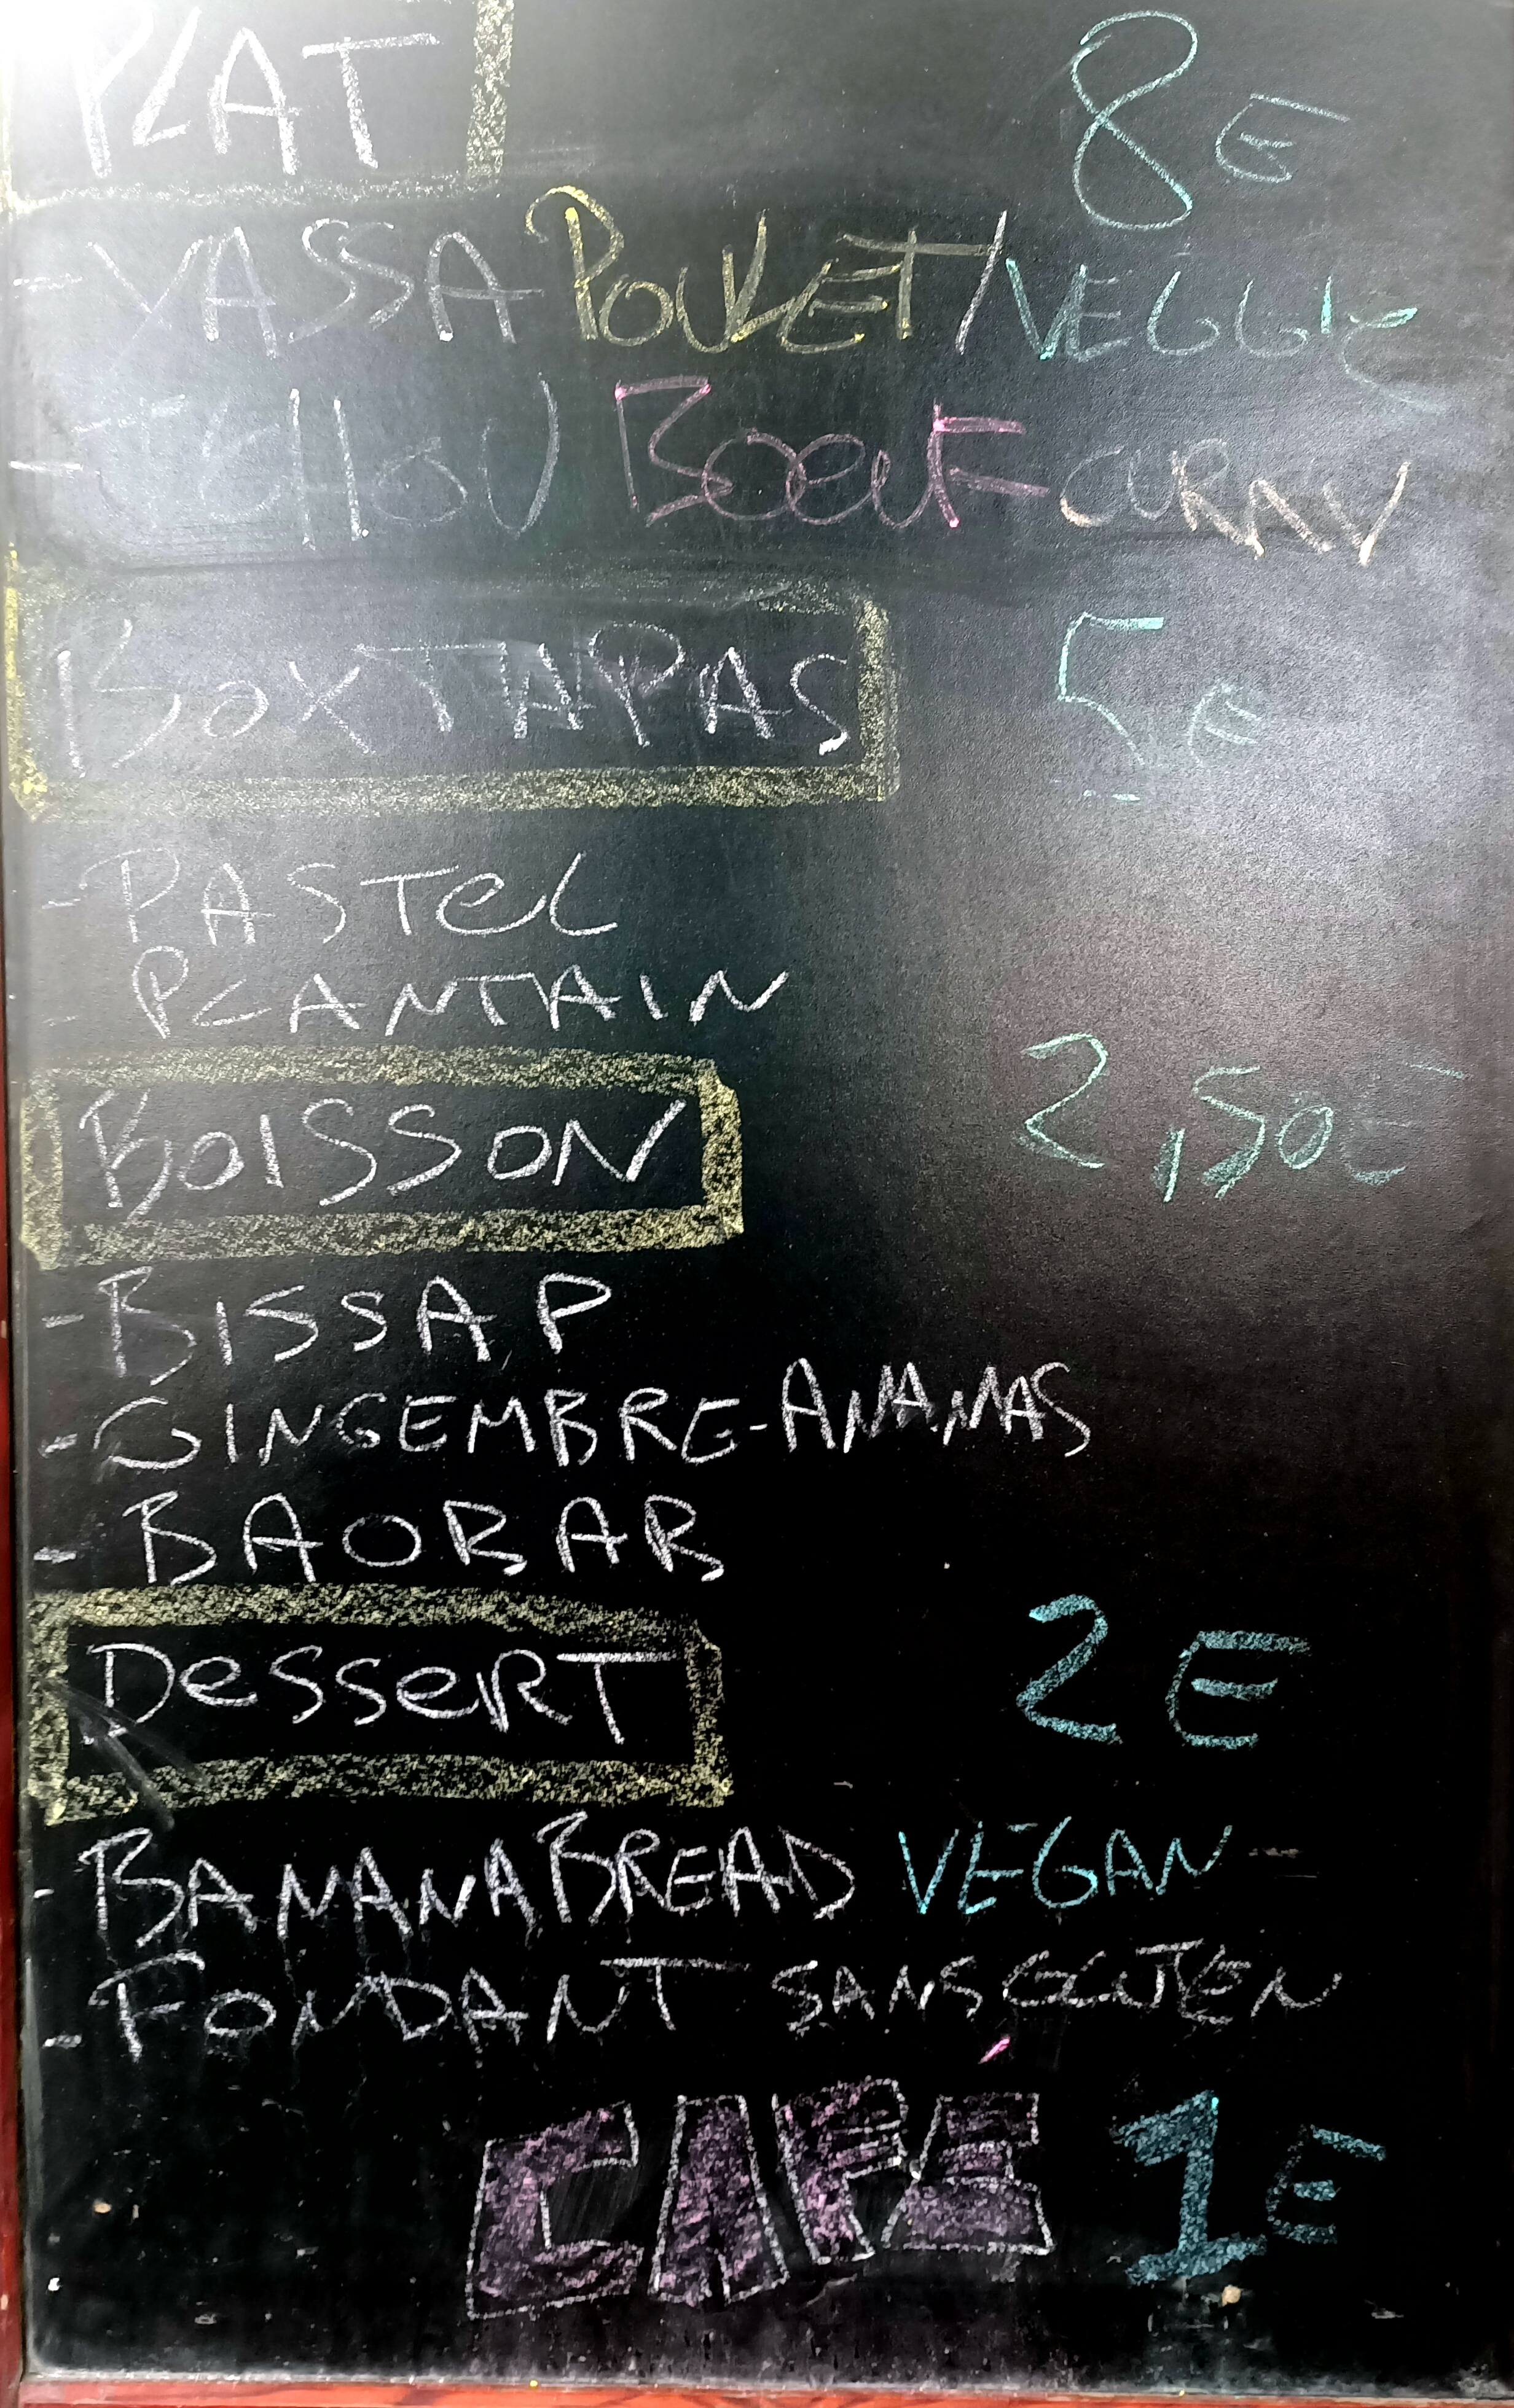 PLAT 8E
- YASSA POULET/VEGGIE
- TCHOU BOEUF CURRY
BOX TAPAS 5E
- PASTEL
- PLANTAIN
BOISSON 2,50E
- BISSAP
- GINGEMBRE-ANANAS
- BAOBAB
DESSERT 2E
- BANANA BREAD VEGAN
- FONDANT SANS GLUTEN
CAFÉ 1E